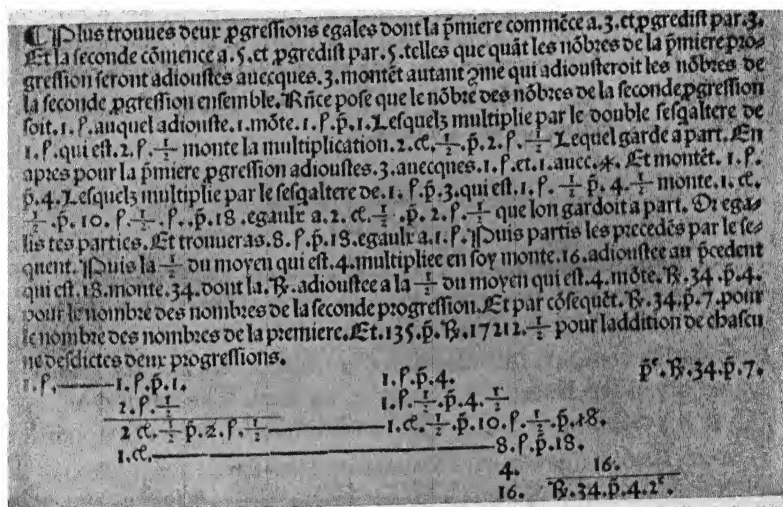 ¶Plus trouues deux ꝓgressions egales dont la p̃miere commẽce a.3.et ꝓgredist par.3.
Et la seconde cõmence a.5.et ꝓgredist par.5.telles que quãt les nõbres de la p̃miere pro⸗
gression seront adioustes auecques.3.montẽt autant ꝯme qui adiousteroit les nõbres de
la seconde ꝓgression ensemble.Rñce pose que le nõbre des nõbres de la seconde ꝓgression
soit.1.ρ.auquel adiouste.1.mõte.1.ρ.p̃.1.Lesquelz multiplie par le double sesqaltere de
1.ρ.qui est.2.ρ.½ monte la multiplication.2.ȼ.½.p̃.2.ρ.½ Lequel garde a part. En
apres pour la p̃miere ꝓgression adioustes.3.auecques.1.ρ.et.1.auec.*. Et montẽt.1.ρ.
p̃.4.Lesquelz multiplie par le sesqaltere de.1.ρ.p̃.3.qui est.1.ρ.½ p̃.4.½ monte.1.ȼ.
½.p̃.10.ρ.½.ρ..p̃.18.egaulx a.2.ȼ.½.p̃.2.ρ.½ que lon gardoit a part. Or ega⸗
lis tes parties. Et trouueras.8.ρ.p̃.18.egaulx a.1.ρ. Puis partis les precedẽs par le se⸗
quent. Puis la ½ du moyen qui est.4.multipliee en soy monte.16.adioustee au p̃cedent
qui est.18.monte.34.dont la.℞.adioustee a la ½ du moyen qui est.4.mõte.℞.34.p̃.4.
pour le nombre des nombres de la seconde progression.Et par cõsequẽt.℞.34.p̃.7.pour
le nombre des nombres de la premiere.Et.135.p̃.℞.17212.½ pour laddition de chascu
ne desdictes deux progressions.
1.ρ.——1.ρ.p̃.1. 1.ρ.p̃.4. p̃ᶜ.℞.34.p̃.7.
2.ρ.½ 1.ρ.½.p̃.4.½
2 ȼ.½ p̃.2.ρ.½——1.ȼ.½.p̃.10.ρ.½.p̃.18.
1.ȼ.——8.ρ.p̃.18.
4. 16.
16. ℞.34.p̃.4.2ᶜ.